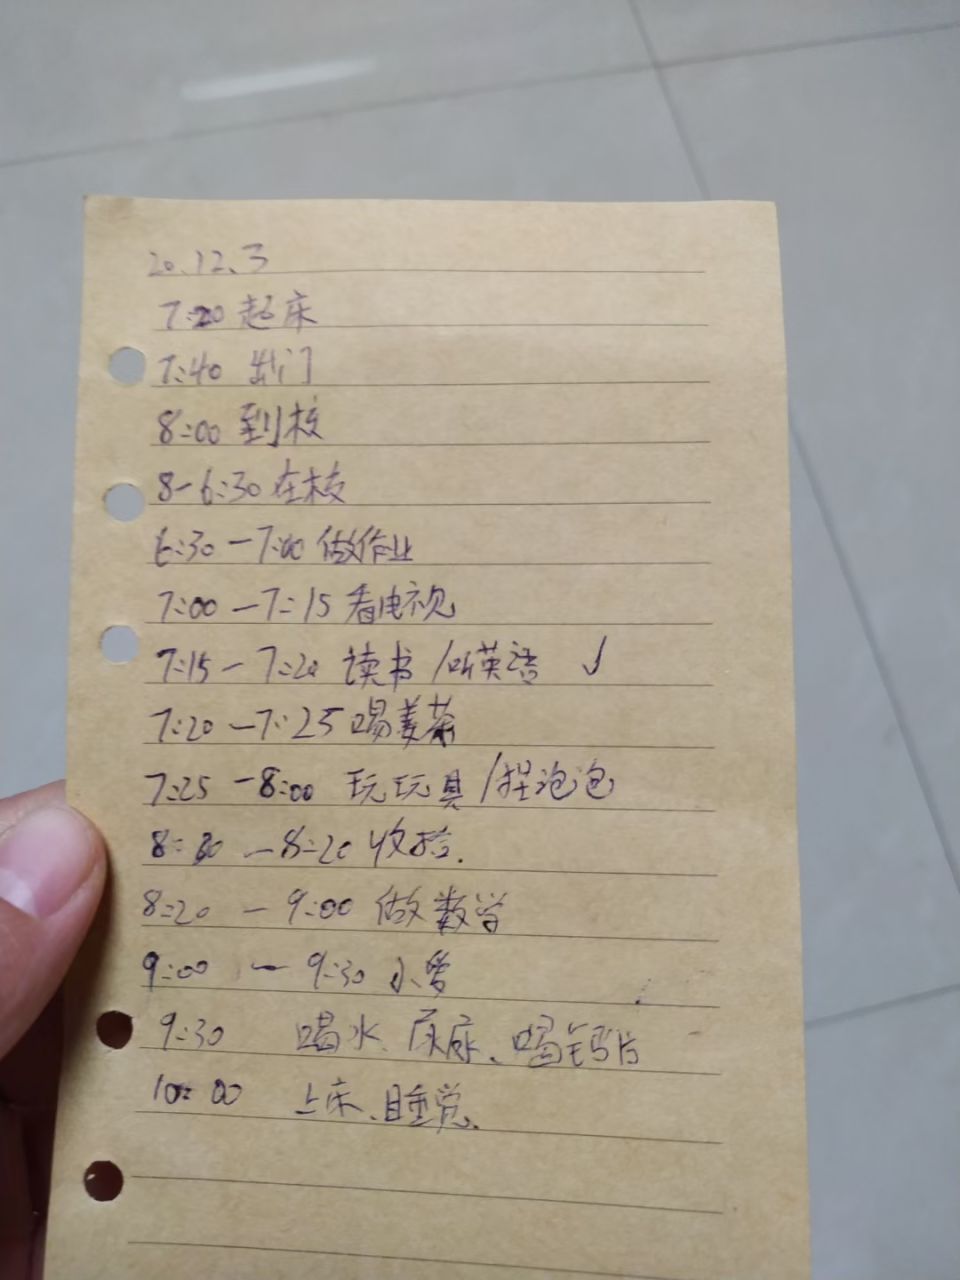 20.12.3
7:20 起床
7:40 出门
8:00 到校
8-6:30 在校
6:30-7:00 做作业
7:00-7:15 看电视
7:15-7:20 读书/听英语 √
7:20-7:25 喝姜茶
7:25-8:00 玩玩具/捏泡泡
8:00-8:20 收拾.
8:20-9:00 做数学
9:00-9:30
9:30 喝水、尿尿、喝钙片
10:00 上床、睡觉.